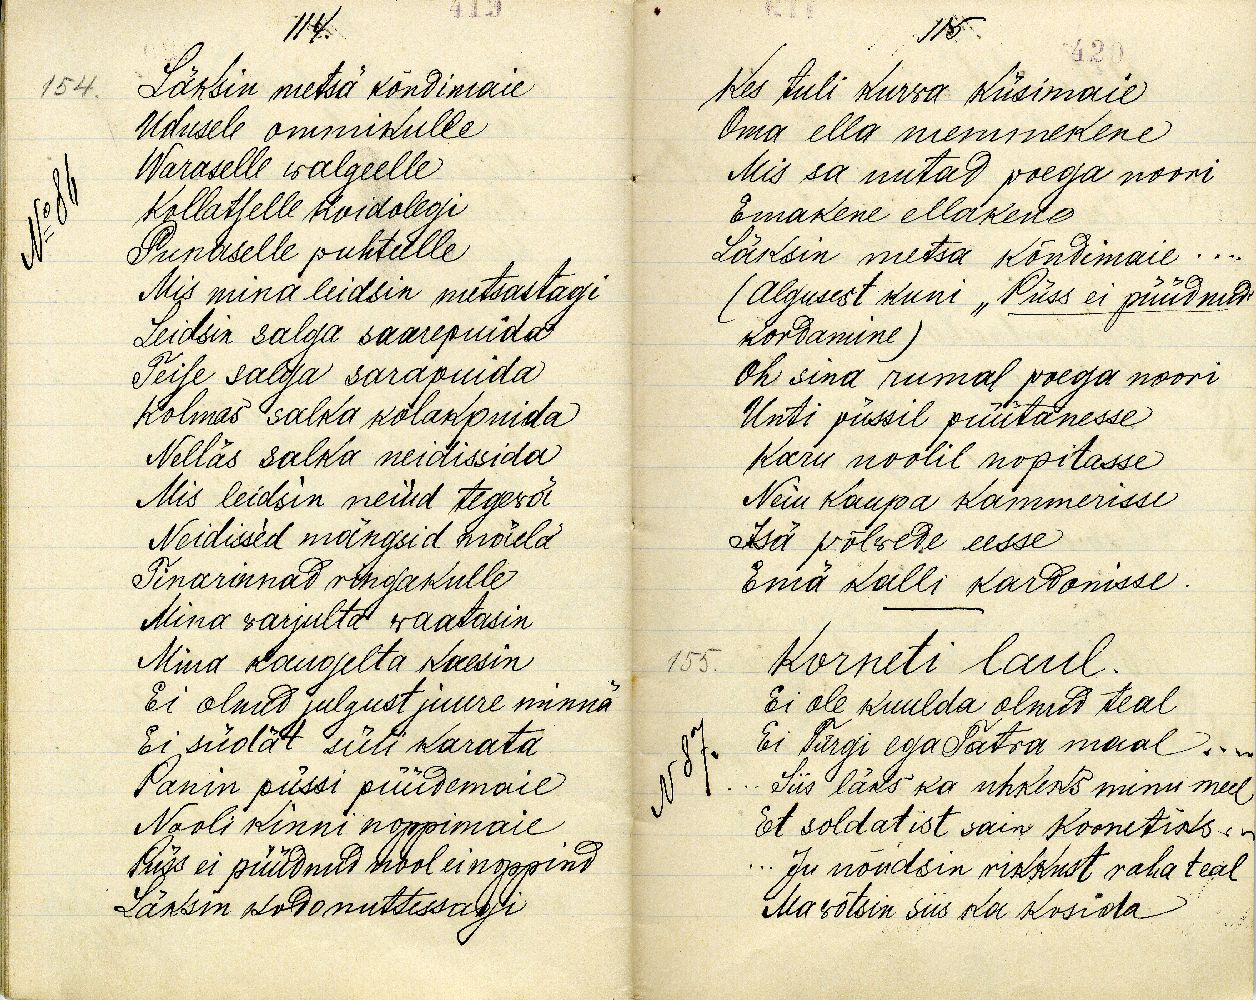 419
114.
154.
Läksin metsä kõndimaie
Udusele ommikulle
Waraselle walgeelle
Kollatselle koidolegi
Punaselle puhtelle
Mis mina leidsin metsastagi
Leidsin salga saarepuida
Teise salga sarapuida
Kolmas salka kõlakpuida
Nelläs salka neidissida
Mis leidsin neiud tegewä
Neidissed mängsid mäelä
Tinarinnad ringakulle
Mina varjulta waatasin
Mina kaugelta kaesin
Ei olnud julgust juure minnä
Ei südät süli karata
Panin püssi püüdemaie
Nooli kinni noppimaie
Püss ei püüdnud nool ei noppind
Läksin kodo nuttessagi
No 86
115.
420
Kes tuli kurva küsimaie
Oma ella memmekene
Mis sa nutad poega noori
Emakene ellakene
Läksin metsa kõndimaie ....
(Algusest kuni „Püss ei püüdnud
kordamine)
Oh sina rumal poega noori
Unti püssil püütanesse
Karu noolil nopitasse
Neiu kaupa kammerisse
Isä põlwede eesse
Emä kalli kardonisse.
155.
Korneti laul.
Ei ole kuulda olnud teal
Ei Türgi ega Tatra maal ....
... Siis läks ka uhkeks minu meel
Et soldatist sain koonetiks ...
... Ju nõudsin rikkust raha teal
Ma võtsin siis ka kosida
N 87.